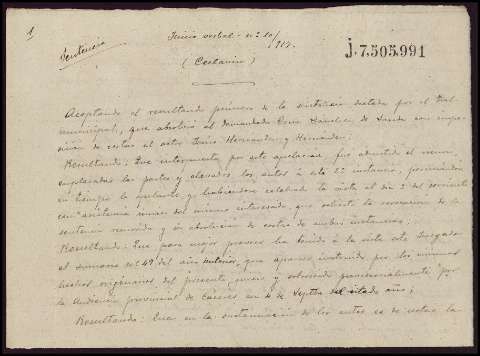 1
Sentencia
Juicio verbal - nº 10/917.
(Ceclavin)
J.7.505.991
Aceptando el resultando primero de la sentencia dictada por el Tral
municipal, que absolvió al demandado Cruz Sánchez de Sande con impo-
sición de costas al actor Hernández y Hernández;
Resultando: Que interpuesta por este apelación, fue admitido el recurso,
emplazadas las partes y elevados los autos a esta 2ª instancia, personándose
en tiempo la apelante y habiéndose celebrado la vista el día 2 del corriente
con asistencia del mismo interesado, que solicitó la revocación de la
sentencia recurrida y la absolución de costas de ambas instancias;
Resultando: Que para mejor proveer ha tenido a la vista este Juzgado
el sumario nº 49 del año anterior, que aparece instruido por los mismos
hechos originarios del presente juicio y sobreseido provisionalmente por
la Audiencia provincial de Cáceres en 4 de Septbre del citado año;
Resultando: Que en la sustanciación de los autos es de notar la